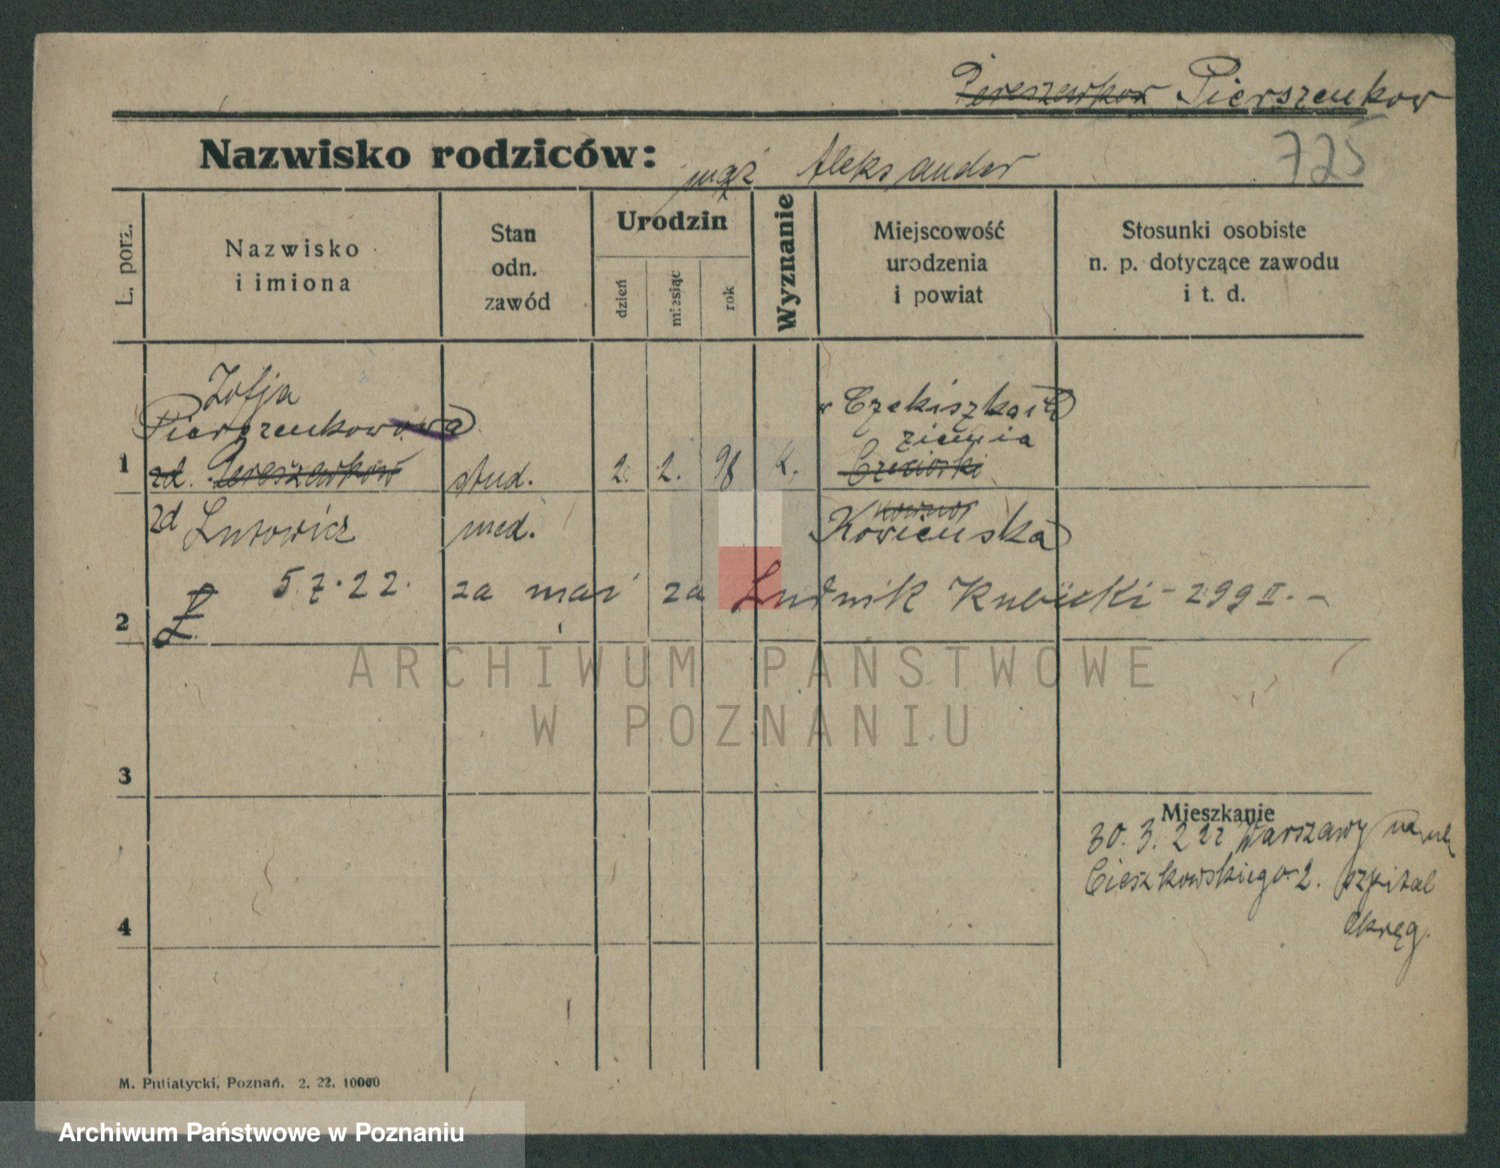 Pereszewkow Pierszenkow
Nazwisko rodziców: mąż Aleksander 725
L. porz.
Nazwisko
i imiona
Stan
odn.
zawód
Urodzin
dzień
miesiąc
rok
Wyznanie
Miejscowość
urodzenia
i powiat
Stosunki osobiste
n. p. dotyczące zawodu
i t. d.
Zofja
Pierszenkowowa
1 zd. Pereszewkow stud. 2. 2. 98 k.
Czekiszka
ziemia
zd Lutowicz med.
Kowieńska
2 5 7. 22. za mąż za Ludwik Kubicki - 299 II. -
3
Mieszkanie
30. 3. 22 z Warszawy na
Cieszkowskiego 2. szpital
Okręg.
4
M. Putiatycki, Poznań. 2. 22. 10000
ARCHIWUM PAŃSTWOWE
W POZNANIU
Archiwum Państwowe w Poznaniu